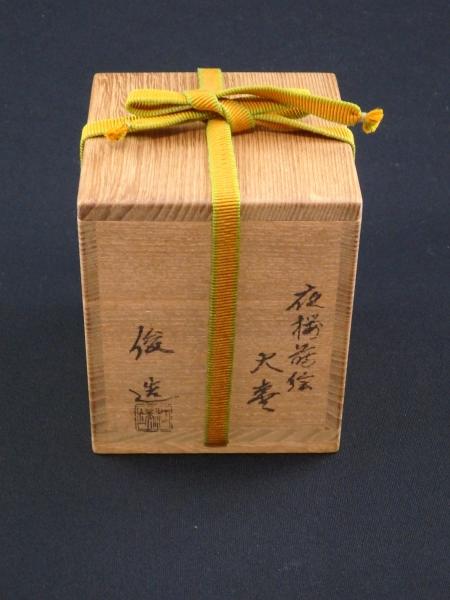 夜桜蒔絵
大棗
俊造